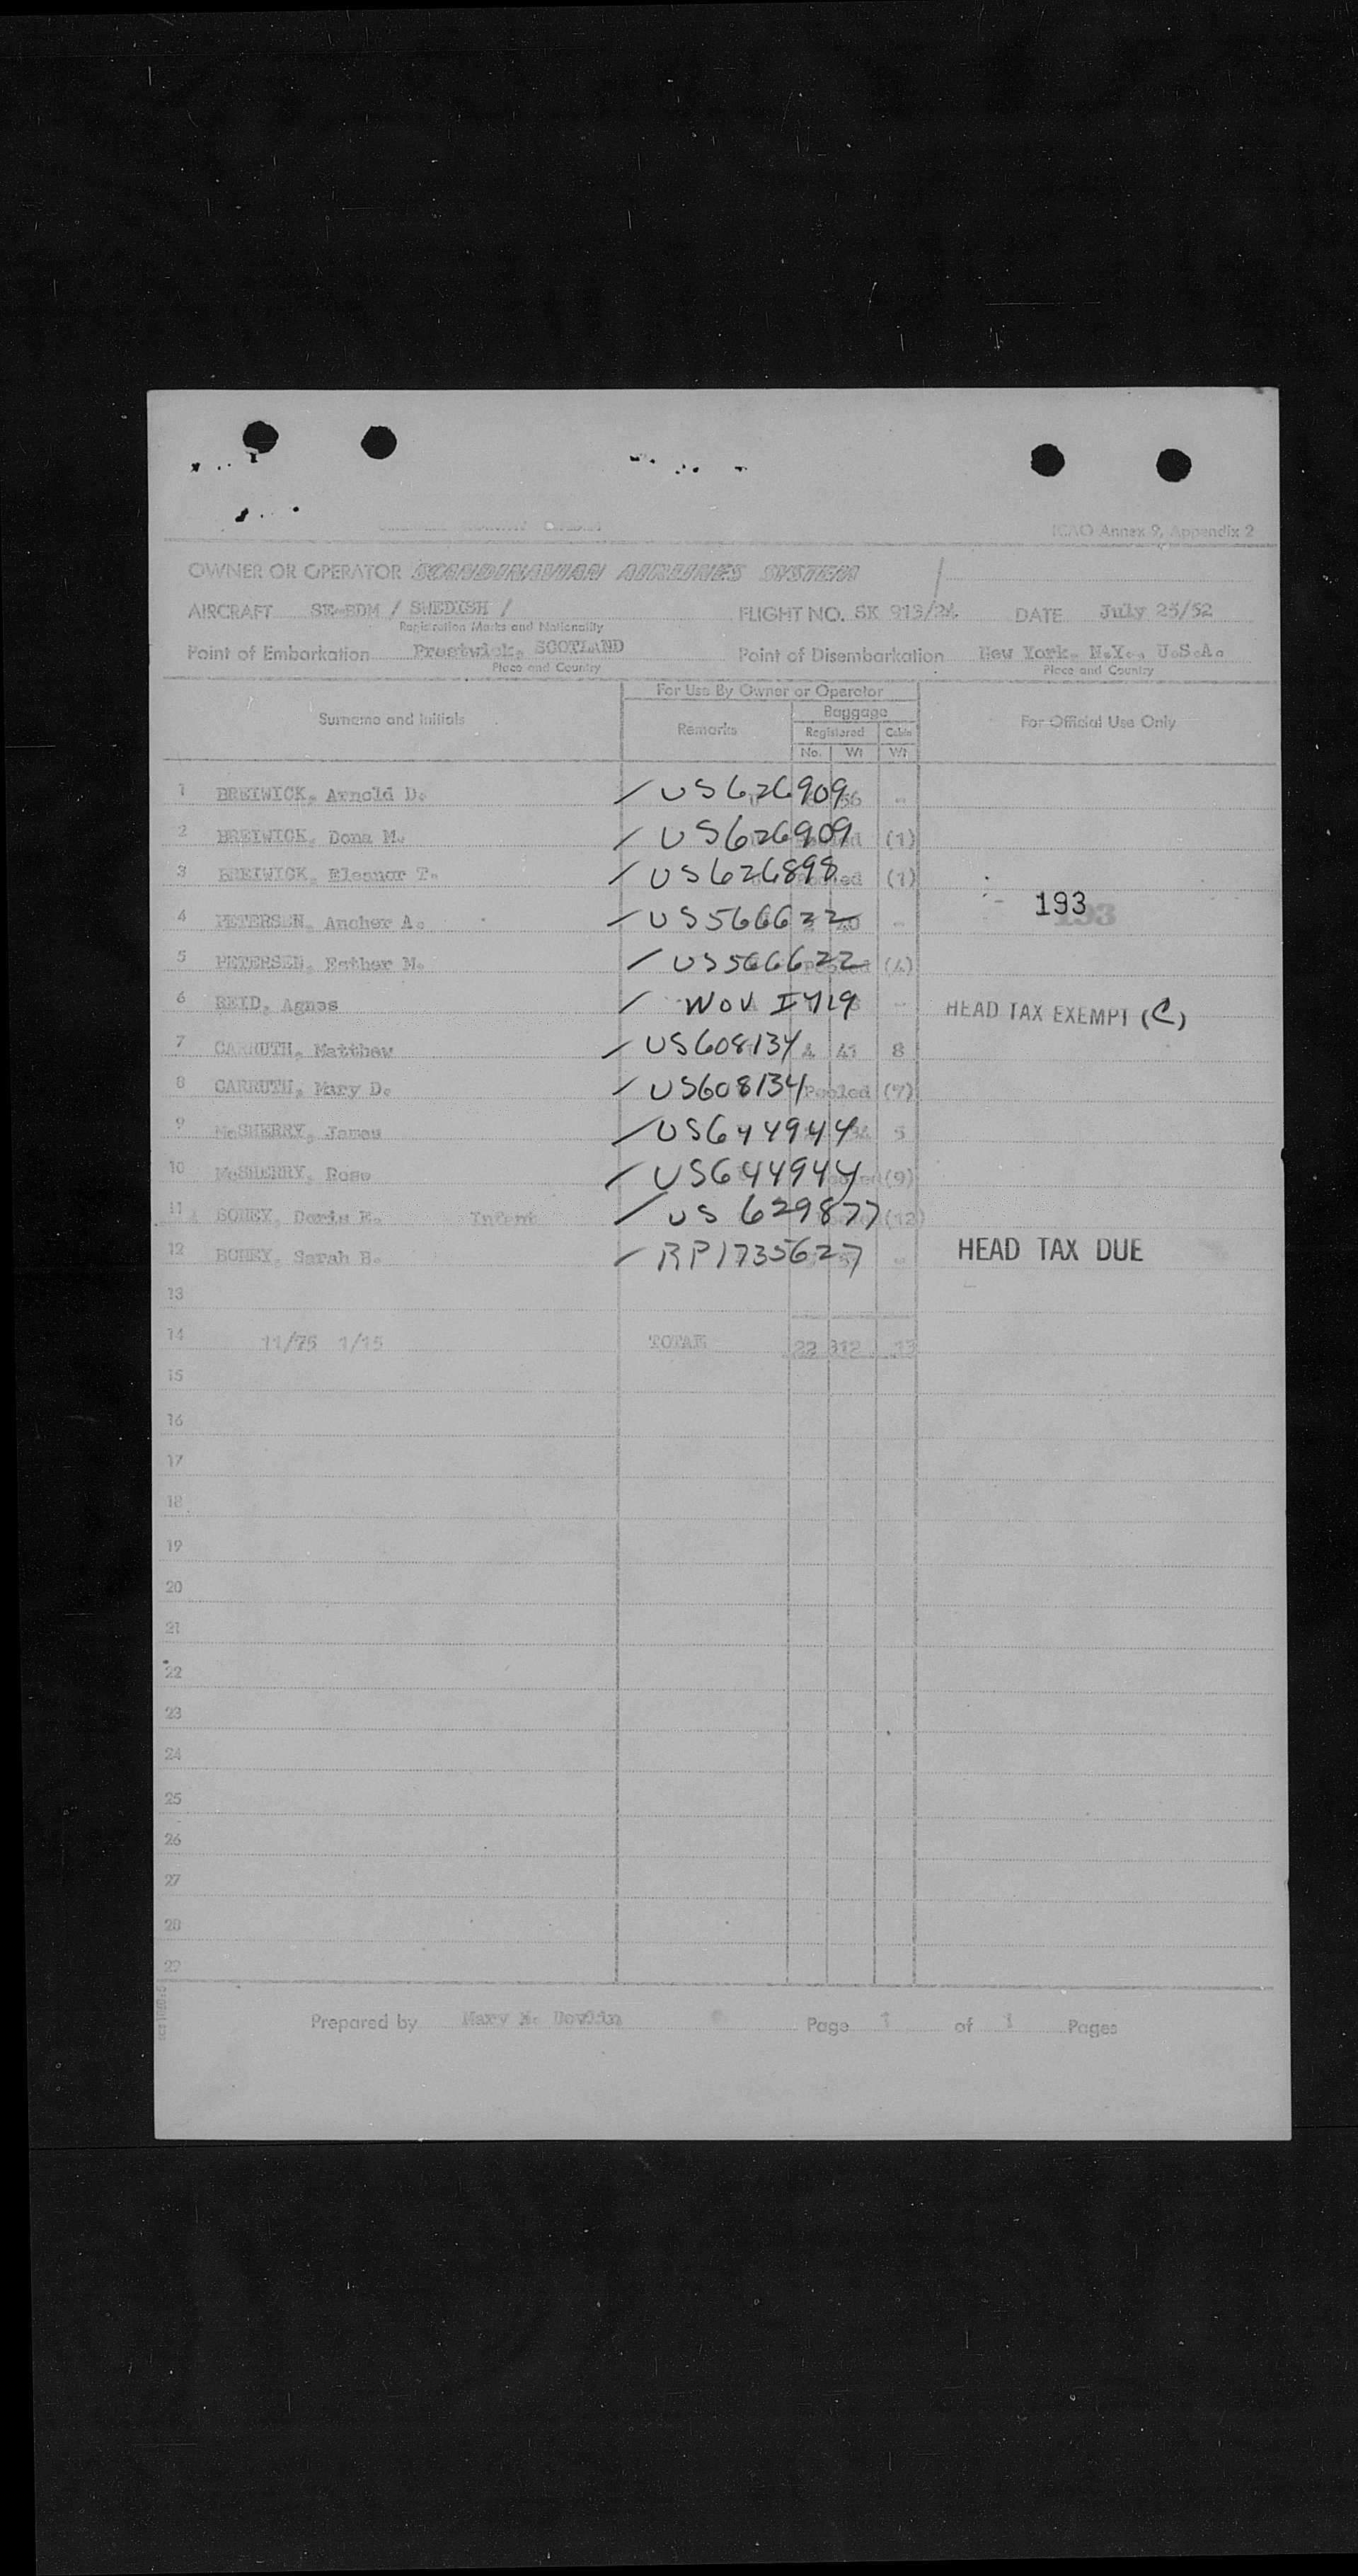 ICAO Annex 9, Appendix 2
OWNER OR OPERATOR SCANDINAVIAN AIRLINES SYSTEM
AIRCRAFT SE-BDM / SWEDISH / FLIGHT NO. SK 913/24 DATE July 25/52
Registration Marks and Nationality
Point of Embarkation Prestwick, SCOTLAND Point of Disembarkation New York, N.Y., U.S.A.
Place and Country Place and Country
For Use By Owner or Operator
Surname and Initials Remarks Baggage For Official Use Only
Registered Cabin
No. Wt Wt
1 BREIWICK, Arnold D. / US626909 56 -
2 BREIWICK, Dona M. / US626909 (1)
3 BREIWICK, Eleanor T. / US626898 Pooled (1)
193 193
4 PETERSEN, Ancher A. / US566622 -
5 PETERSEN, Esther M. / US566622 (4)
6 REID, Agnes / - HEAD TAX EXEMPT (C)
7 CARRUTH, Matthew / US608134 4 41 8
8 CARRUTH, Mary D. / US608134 Pooled (7)
9 McSHERRY, James / US644944 5
10 McSHERRY, Rose / US644944 (9)
11 BONEY, Doris E. Infant / US 629877 (12)
12 BONEY, Sarah B. / RP1735627 - HEAD TAX DUE
13
14 11/75 1/15 TOTAL 22 312 13
15
16
17
18
19
20
21
22
23
24
25
26
27
28
29
Prepared by Mary M. Devlin Page 1 of 1 Pages